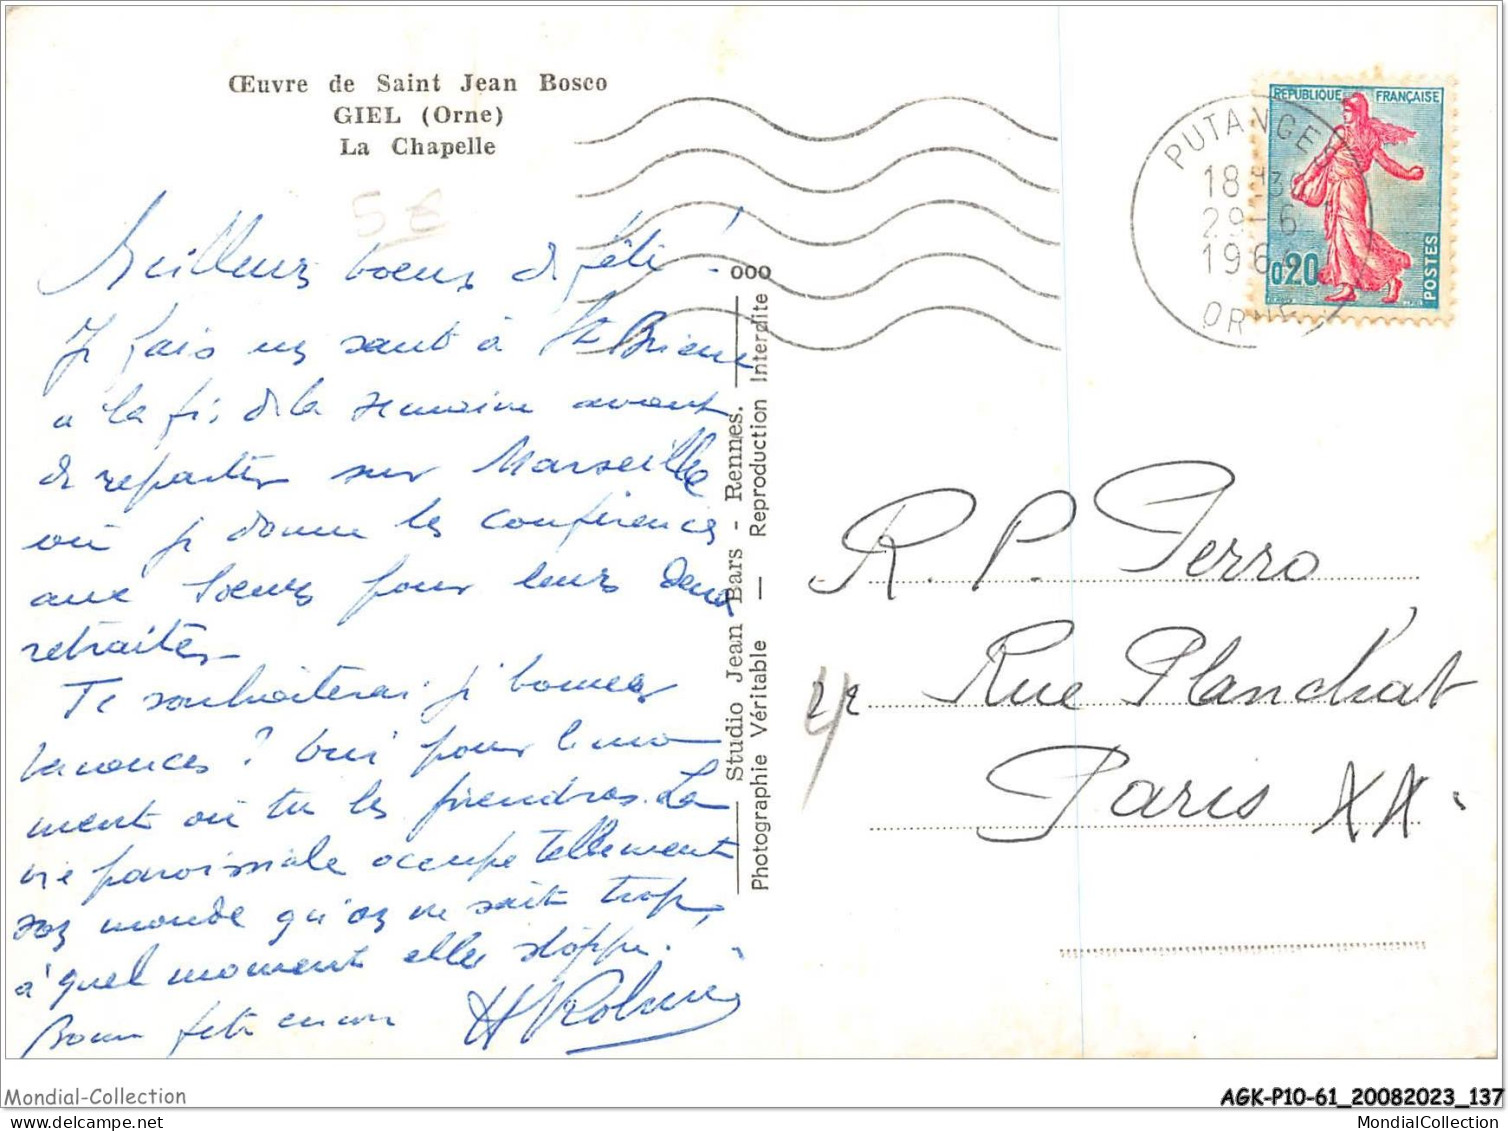 Œuvre de Saint Jean Bosco
GIEL (Orne)
La Chapelle
5 €
Meilleurs voeux de fête !
Je fais un saut à St Brieuc
à la fin de la semaine avant
de repartir sur Marseille
où je donne les conférences
aux soeurs pour leurs deux
retraites
Te souhaiterai-je bonnes
vacances ? Oui pour le mo
ment où tu les prendras. La
vie paroissiale occupe tellement
son monde qu'on ne sait trop
à quel moment elle stoppe.
Bonne fête encore
ooo
Studio Jean Bars - Rennes.
Photographie Véritable — Reproduction Interdite
REPUBLIQUE FRANÇAISE
0,20
POSTES
PUTANGES
18 H 3
29-6
196
ORNE
R. P. Perro
22 Rue Planchat
Paris XX.
4
Mondial-Collection
AGK-P10-61_20082023_137
MondialCollection